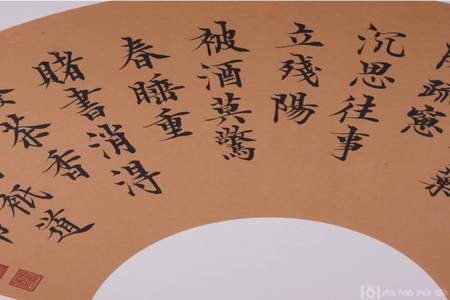 葉
疏窻
沉思往事
立殘陽
被酒莫驚
春睡重
賭書消得
茶香
祗道